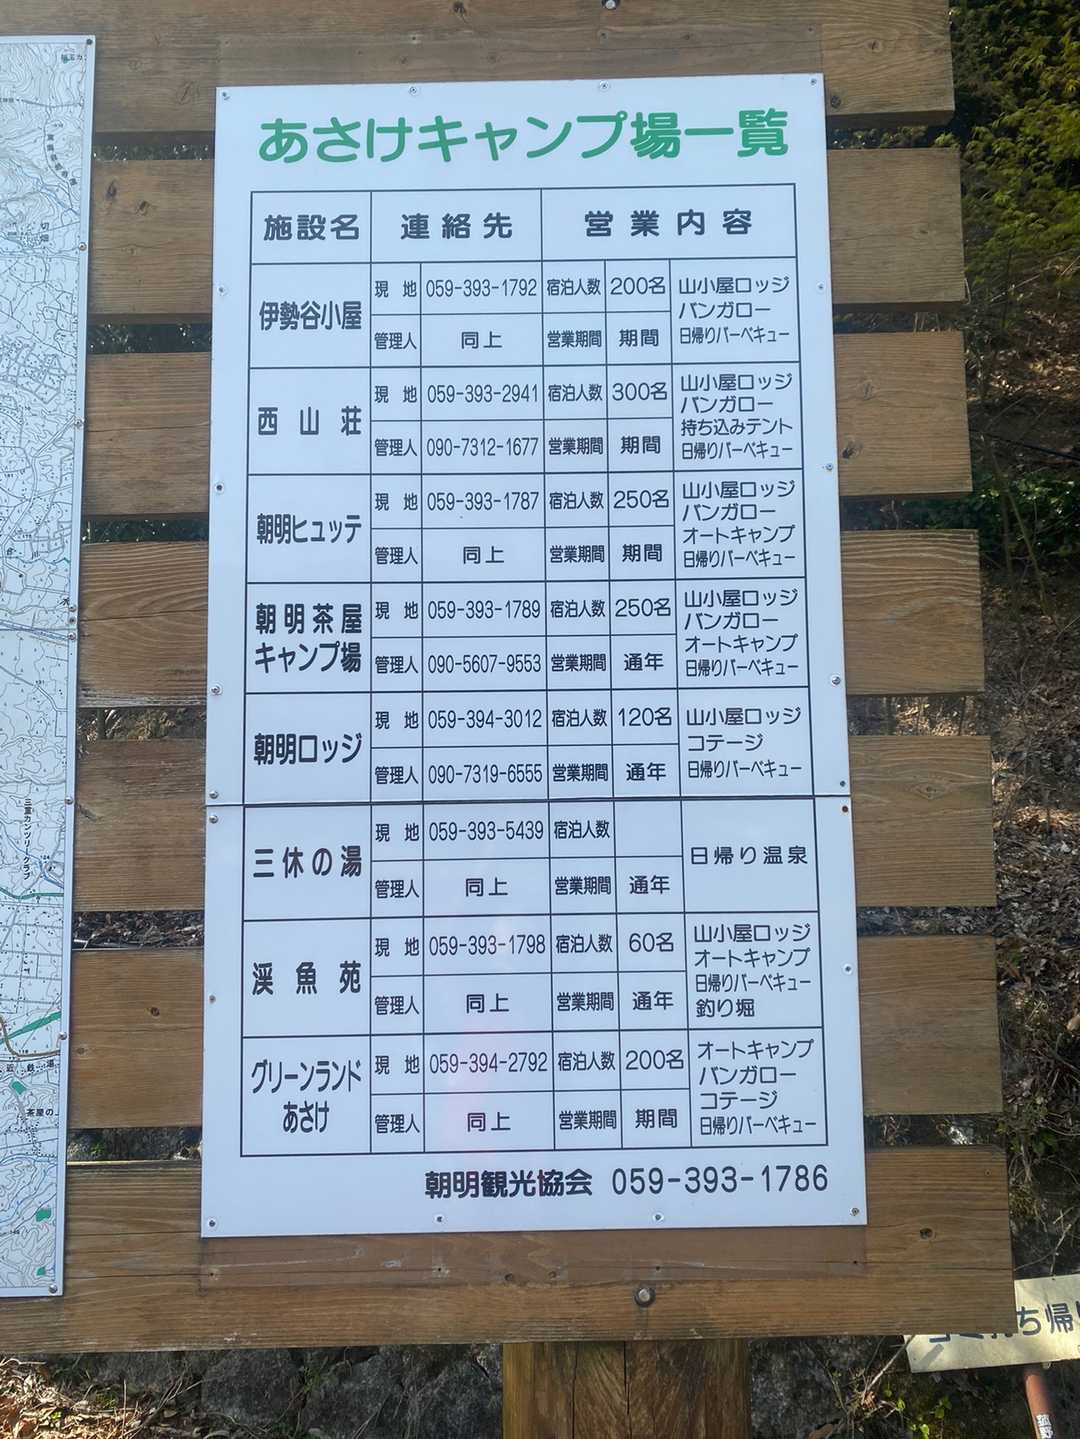 あさけキャンプ場一覧
施設名 連絡先 営業内容
伊勢谷小屋
現地 059-393-1792 宿泊人数 200名
管理人 同上 営業期間 期間
山小屋ロッジ
バンガロー
日帰りバーベキュー
西山荘
現地 059-393-2941 宿泊人数 300名
管理人 090-7312-1677 営業期間 期間
山小屋ロッジ
バンガロー
持ち込みテント
日帰りバーベキュー
朝明ヒュッテ
現地 059-393-1787 宿泊人数 250名
管理人 同上 営業期間 期間
山小屋ロッジ
バンガロー
オートキャンプ
日帰りバーベキュー
朝明茶屋
キャンプ場
現地 059-393-1789 宿泊人数 250名
管理人 090-5607-9553 営業期間 通年
山小屋ロッジ
バンガロー
オートキャンプ
日帰りバーベキュー
朝明ロッジ
現地 059-394-3012 宿泊人数 120名
管理人 090-7319-6555 営業期間 通年
山小屋ロッジ
コテージ
日帰りバーベキュー
三休の湯
現地 059-393-5439 宿泊人数
管理人 同上 営業期間 通年
日帰り温泉
渓魚苑
現地 059-393-1798 宿泊人数 60名
管理人 同上 営業期間 通年
山小屋ロッジ
オートキャンプ
日帰りバーベキュー
釣り堀
グリーンランド
あさけ
現地 059-394-2792 宿泊人数 200名
管理人 同上 営業期間 期間
オートキャンプ
バンガロー
コテージ
日帰りバーベキュー
朝明観光協会 059-393-1786
切畑
三重カンツリークラブ
茶屋の
ち帰